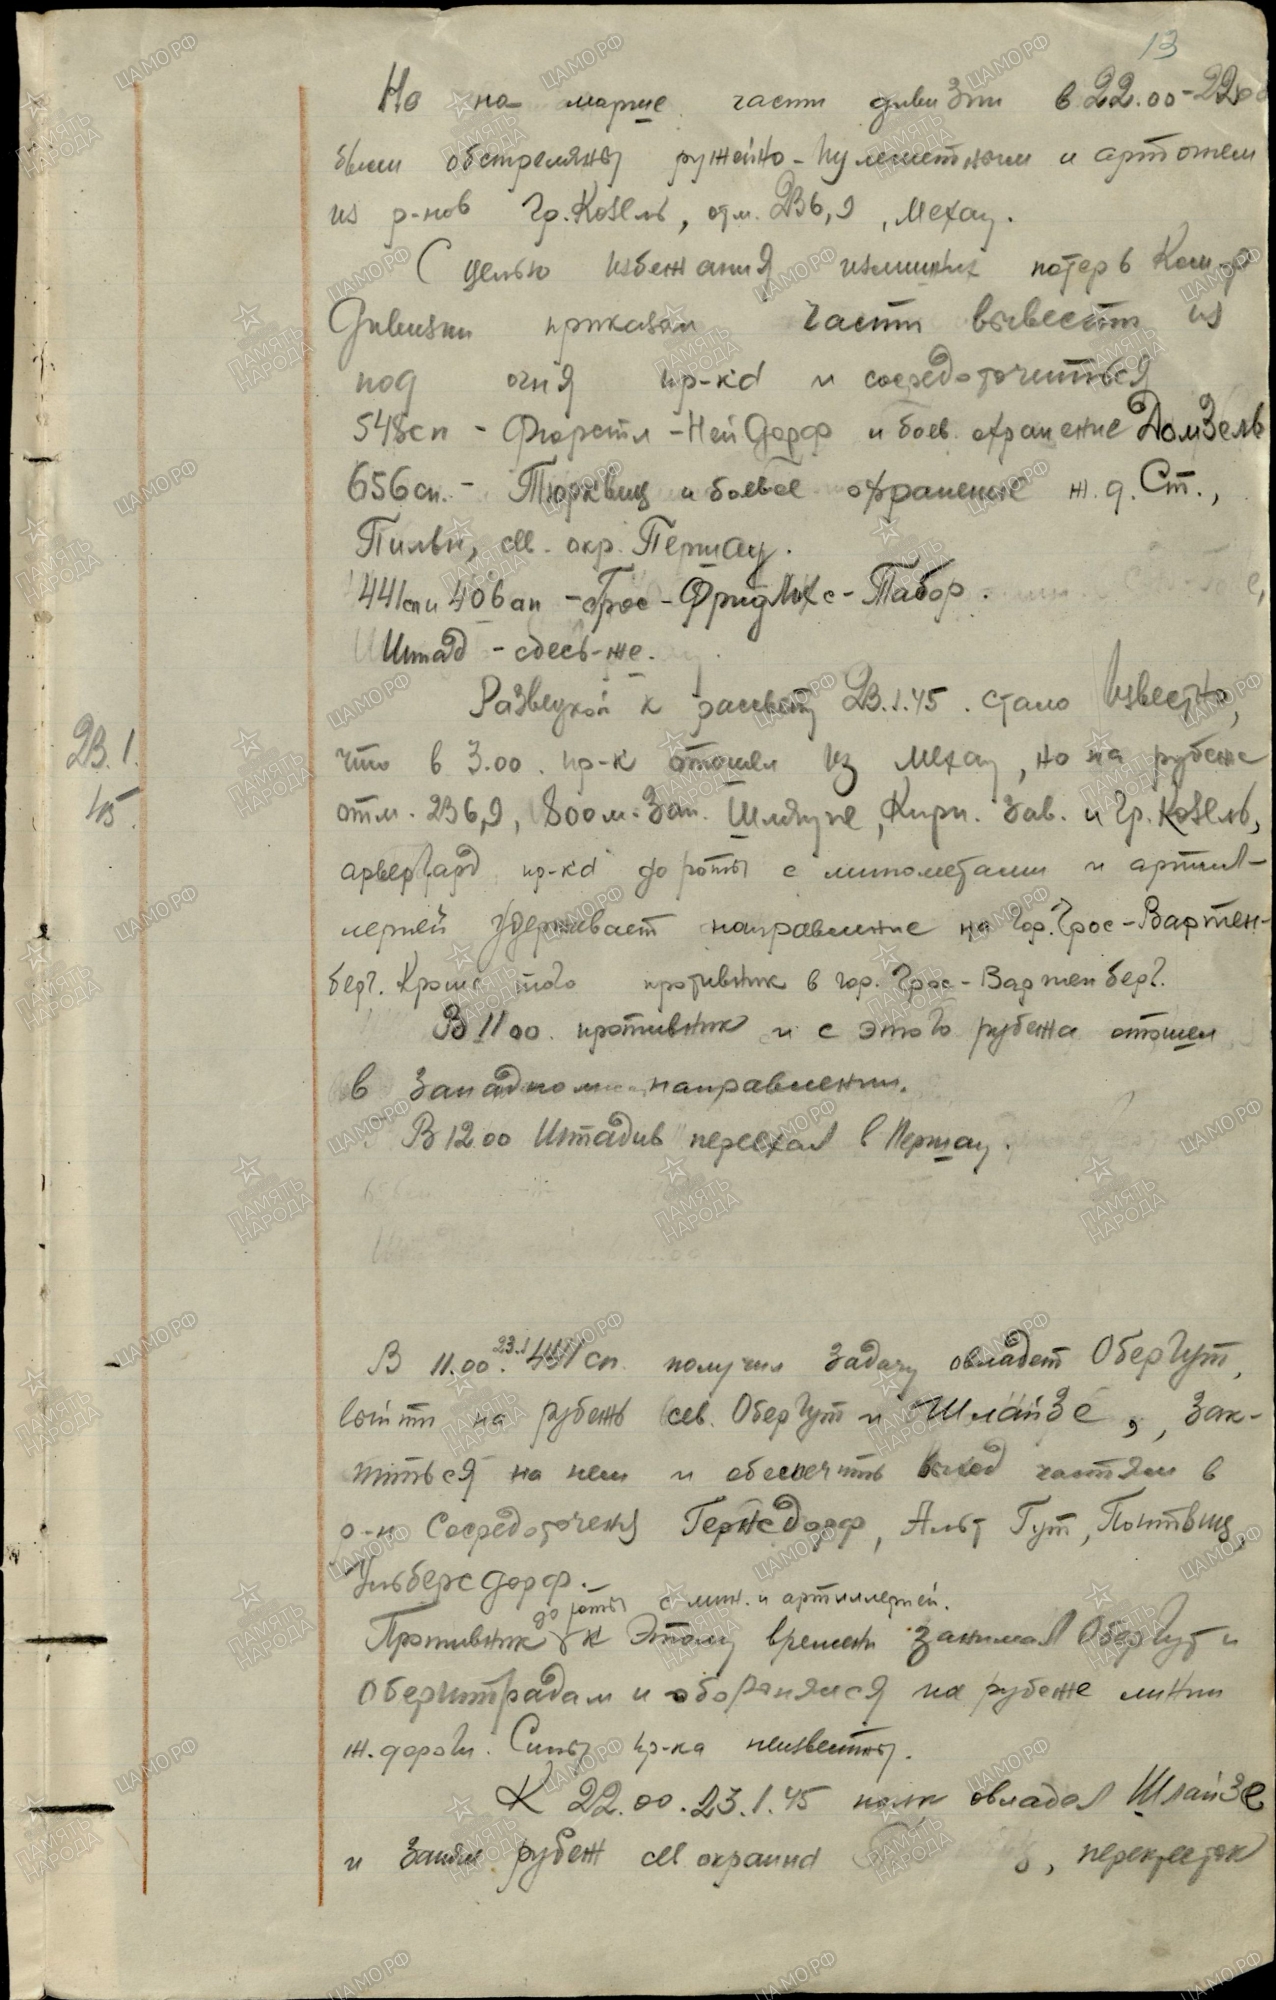 13
Но на марше части дивизии в 22.00-22.00
были обстреляны ружейно-пулеметным и артогнем
из р-нов Гр. Козель, отм. 236,9, Мехау.
С целью избежания излишних потерь Ком-р
Дивизии приказал части вывести из
под огня пр-ка и сосредоточиться
548сп - Фюрстл-Нейдорф и боев. охранение Домзель
656сп. - Тюрквиц и боевое охранение ж.д. Ст.,
Пильн, СЗ. окр. Першау.
441сп и 406ап - Грос-Фридлихс-Табор.
Штад - сдесь-же.
Разведкой к рассвету 23.1.45. стало известно,
23.1.
45.
что в 3.00. пр-к отошел из Мехау, но на рубеже
отм. 236,9, 800м. Зап. Шляупе, Кирп. Зав. и Гр. Козель,
арьергард пр-ка до роты с минометами и артил-
лерией удерживает направление на гор. Грос-Вартен-
берг. Кроме того противник в гор. Грос-Вартенберг.
В 11 00. противник и с этого рубежа отошел
в Западном направлении.
В 12 00 Штадив переехал в Першау.
В 11.00. 23.1 441сп. получил задачу овладеть Обергут,
выйти на рубеж сев. Обергут и Шлайзе, зак-
питься на нем и обеспечить выход частям в
р-н Сосредоточения Гернсдорф, Альт Гут, Понтвиц,
Ульберсдорф.
до роты с мин. и артиллерией.
Противник к этому времени занимал Обергут и
Оберштрадам и оборонялся на рубеже линии
ж. дороги. Силы пр-ка неизвестны.
К 22.00. 23.1.45 полк овладел Шлайзе
и занял рубеж СЗ окраина , перекресток